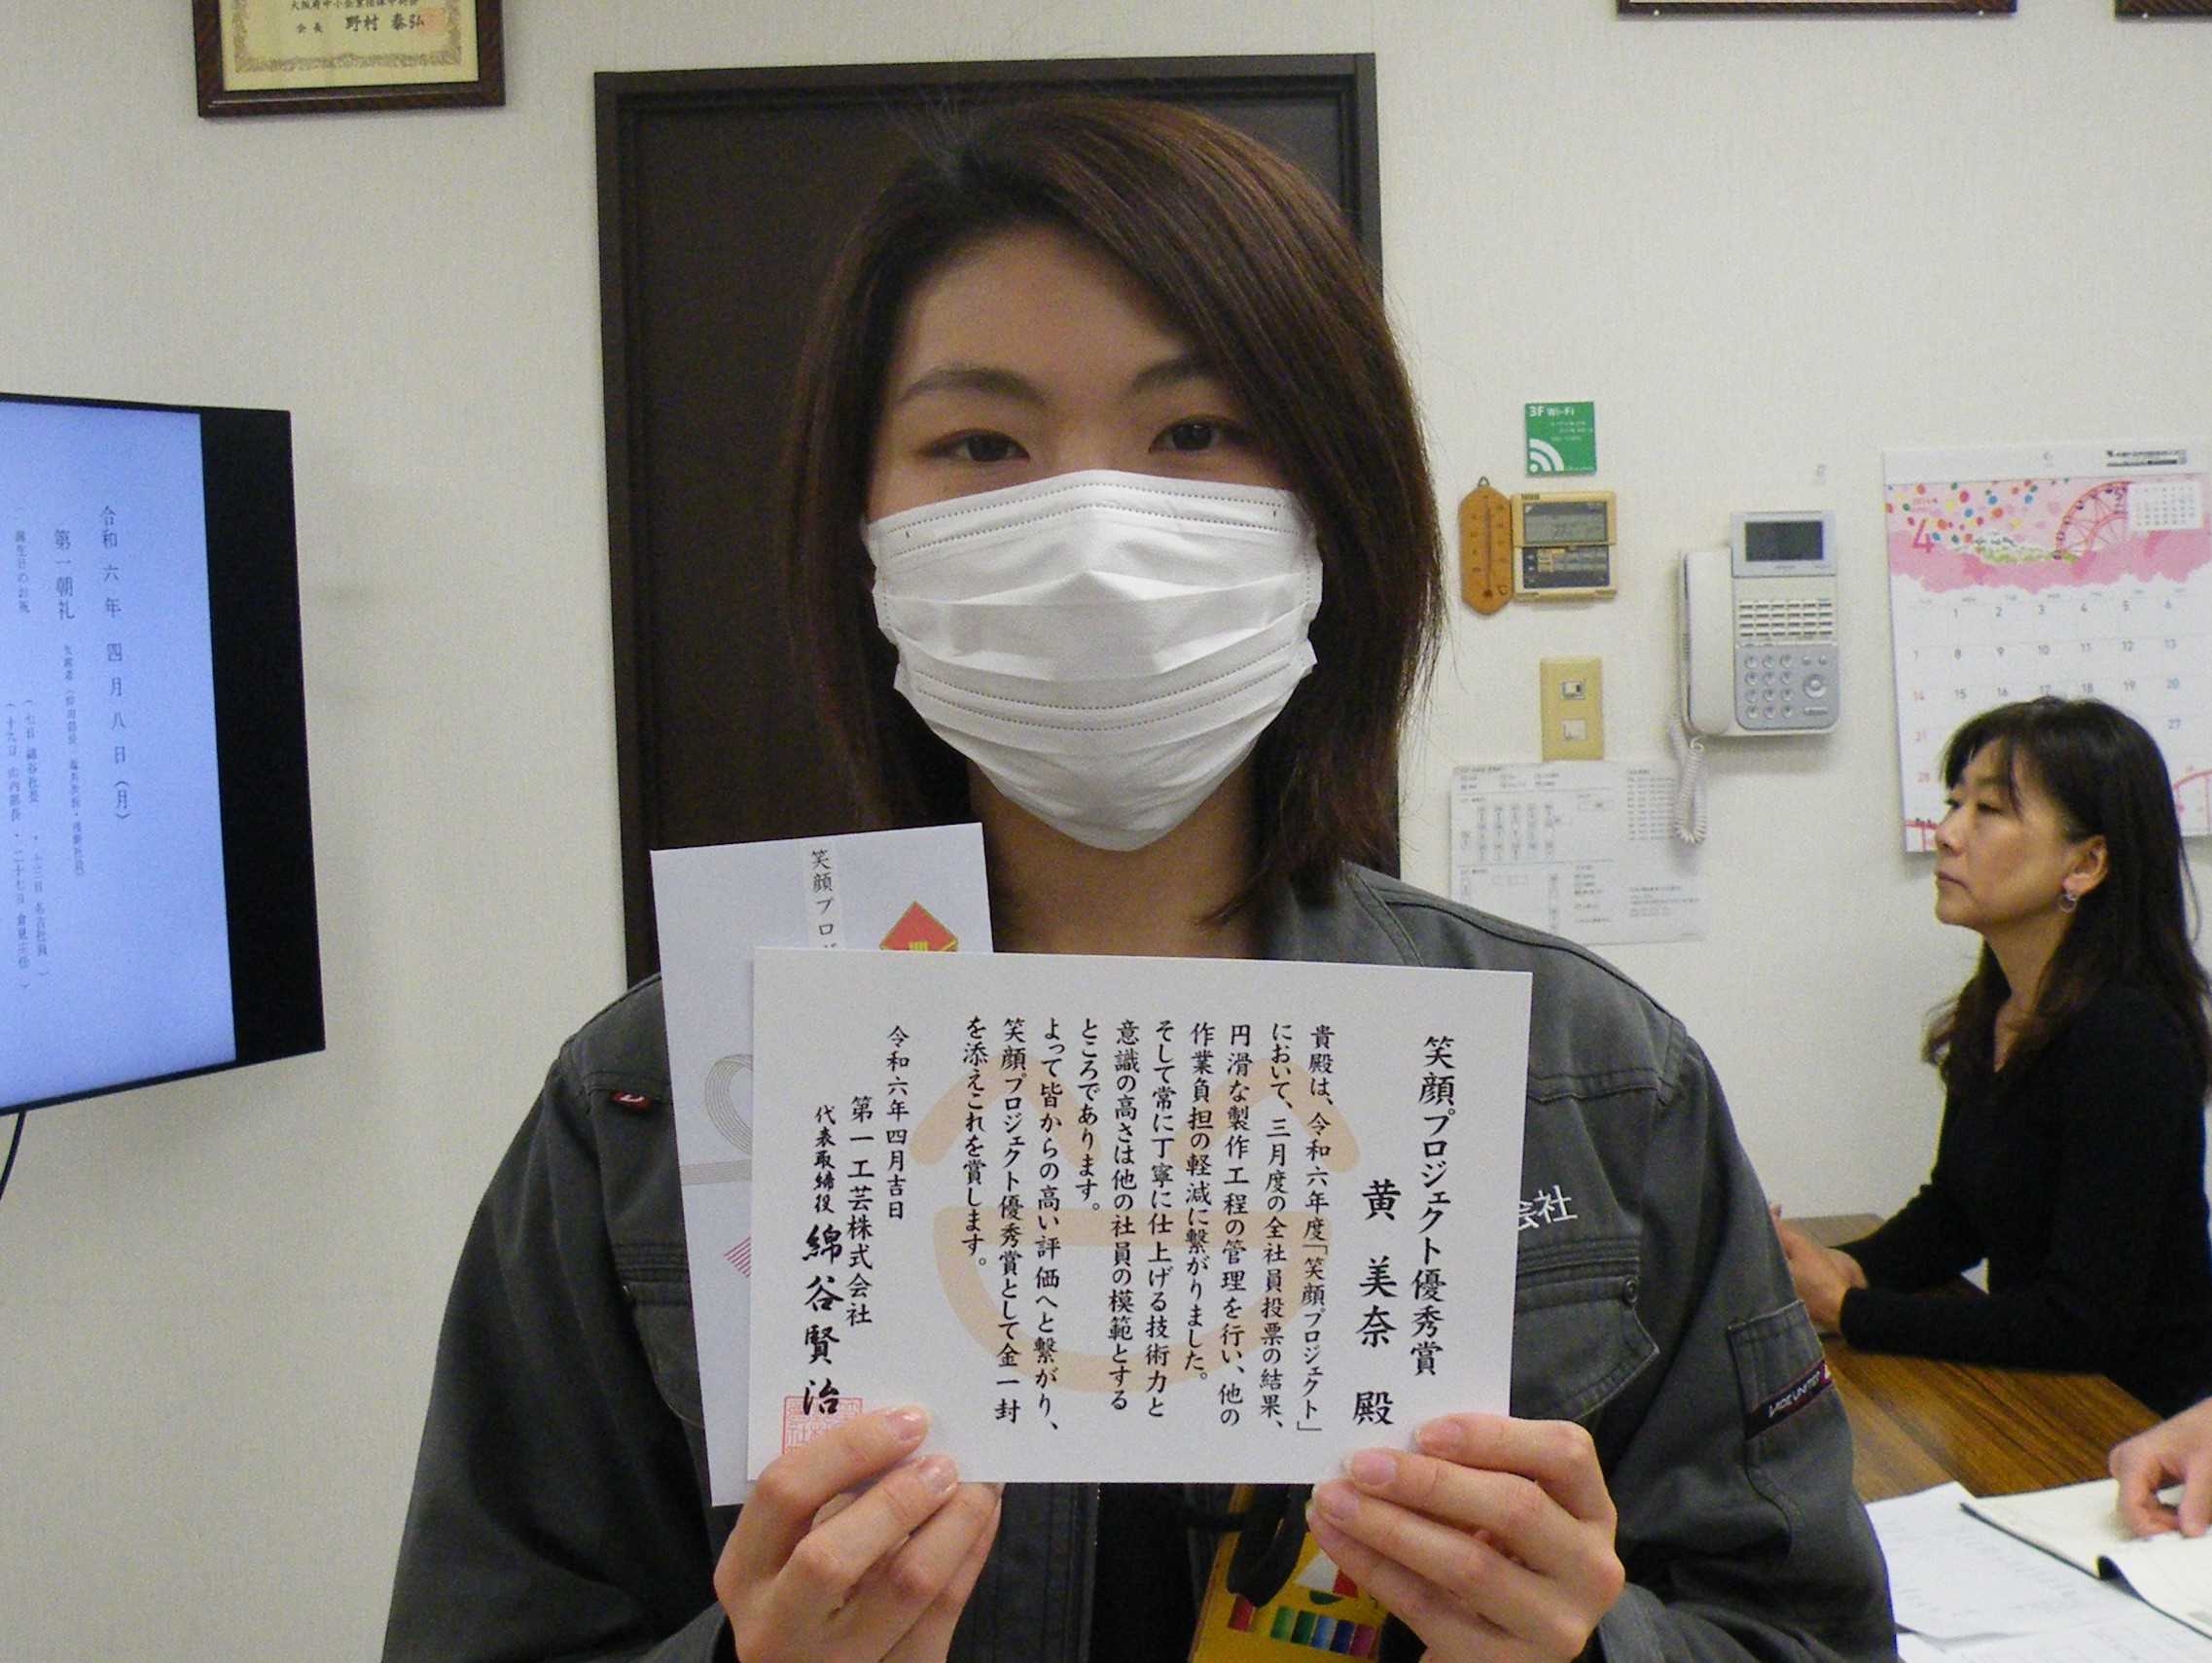 笑顔プロジェクト優秀賞
黄 美奈 殿
貴殿は、令和六年度「笑顔プロジェクト」
において、三月度の全社員投票の結果、
円滑な製作工程の管理を行い、他の
作業負担の軽減に繋がりました。
そして常に丁寧に仕上げる技術力と
意識の高さは他の社員の模範とする
ところであります。
よって皆からの高い評価へと繋がり、
笑顔プロジェクト優秀賞として金一封
を添えこれを賞します。
令和六年四月吉日
第一工芸株式会社
代表取締役 綿谷賢治
笑顔プロジ
令和六年 四月八日(月)
第一朝礼
誕生日のお祝
会長 野村 泰弘
3F Wi-Fi
会社
4
1 2 3 4 5 6
7 8 9 10 11 12 13
14 15 16 17 18 19 20
21
27
28